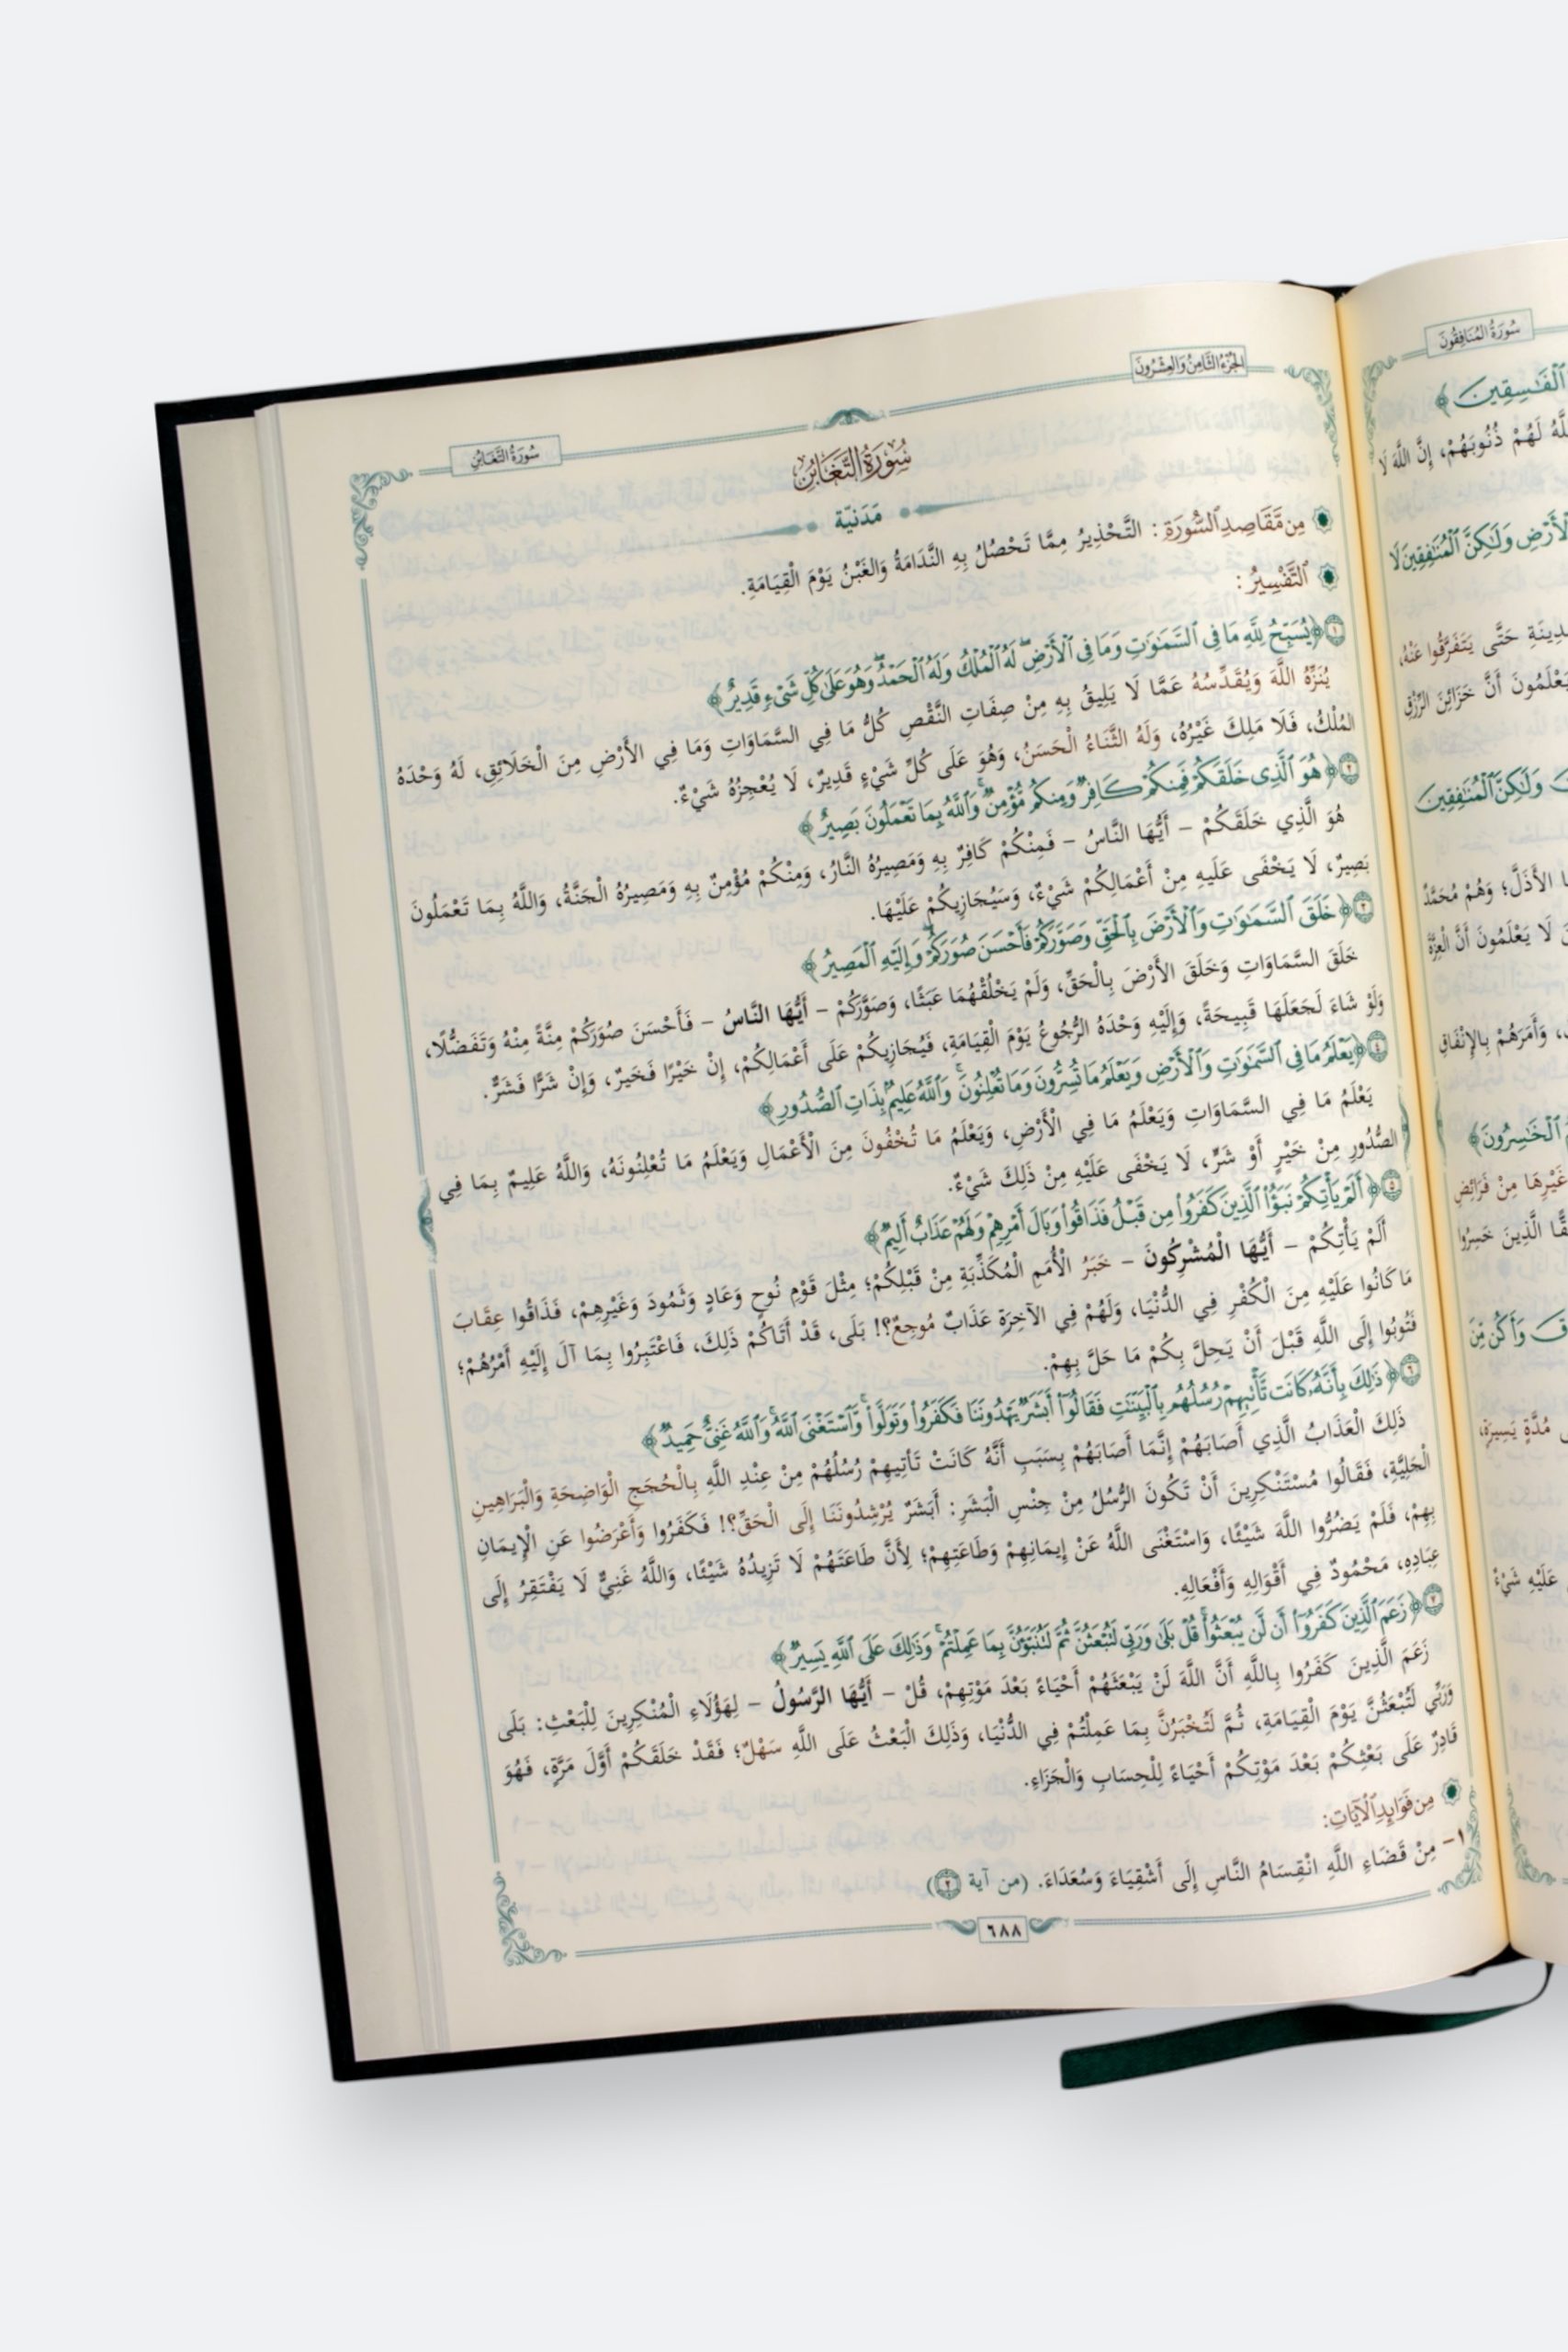 سُورَةُ المُنَافِقُونَ
ٱلْفَٰسِقِينَ ﴾
لَهُمْ ذُنُوبَهُمْ، إِنَّ اللَّهَ لَا
وَلَٰكِنَّ ٱلْمُنَٰفِقِينَ لَا
حَتَّى يَتَفَرَّقُوا عَنْهُ،
يَعْلَمُونَ أَنَّ خَزَائِنَ الرِّزْقِ
وَلَٰكِنَّ ٱلْمُنَٰفِقِينَ
الأَذَلَّ؛ وَهُمْ مُحَمَّدٌ
لَا يَعْلَمُونَ أَنَّ الْعِزَّةَ
وَأَمَرَهُمْ بِالإِنْفَاقِ
ٱلْخَٰسِرُونَ﴾
غَيْرِهَا مِنْ فَرَائِضِ
الَّذِينَ خَسِرُوا
وَأَكُن مِّنَ
مُدَّةٍ يَسِيرَةٍ،
عَلَيْهِ شَيْءٌ
الجُزْءُ الثَّامِنُ وَالعِشْرُونَ
سُورَةُ التَّغَابُنِ
سُورَةُ التَّغَابُنِ
مَدَنيّة
مِن مَّقَاصِدِ ٱلسُّورَةِ: التَّحْذِيرُ مِمَّا تَحْصُلُ بِهِ النَّدَامَةُ وَالغَبْنُ يَوْمَ الْقِيَامَةِ.
ٱلتَّفْسِيرُ:
١ ﴿يُسَبِّحُ لِلَّهِ مَا فِى ٱلسَّمَٰوَٰتِ وَمَا فِى ٱلْأَرْضِۖ لَهُ ٱلْمُلْكُ وَلَهُ ٱلْحَمْدُۖ وَهُوَ عَلَىٰ كُلِّ شَىْءٍ قَدِيرٌ﴾
يُنَزِّهُ اللَّهَ وَيُقَدِّسُهُ عَمَّا لَا يَلِيقُ بِهِ مِنْ صِفَاتِ النَّقْصِ كُلُّ مَا فِي السَّمَاوَاتِ وَمَا فِي الأَرْضِ مِنَ الْخَلَائِقِ، لَهُ وَحْدَهُ
المُلْكُ، فَلَا مَلِكَ غَيْرُهُ، وَلَهُ الثَّنَاءُ الْحَسَنُ، وَهُوَ عَلَى كُلِّ شَيْءٍ قَدِيرٌ، لَا يُعْجِزُهُ شَيْءٌ.
٢ ﴿هُوَ ٱلَّذِى خَلَقَكُمْ فَمِنكُمْ كَافِرٌ وَمِنكُم مُّؤْمِنٌۚ وَٱللَّهُ بِمَا تَعْمَلُونَ بَصِيرٌ﴾
هُوَ الَّذِي خَلَقَكُمْ – أَيُّهَا النَّاسُ – فَمِنْكُمْ كَافِرٌ بِهِ وَمَصِيرُهُ النَّارُ، وَمِنْكُمْ مُؤْمِنٌ بِهِ وَمَصِيرُهُ الْجَنَّةُ، وَاللَّهُ بِمَا تَعْمَلُونَ
بَصِيرٌ، لَا يَخْفَى عَلَيهِ مِنْ أَعْمَالِكُمْ شَيْءٌ، وَسَيُجَازِيكُمْ عَلَيْهَا.
٣ ﴿خَلَقَ ٱلسَّمَٰوَٰتِ وَٱلْأَرْضَ بِٱلْحَقِّ وَصَوَّرَكُمْ فَأَحْسَنَ صُوَرَكُمْۖ وَإِلَيْهِ ٱلْمَصِيرُ﴾
خَلَقَ السَّمَاوَاتِ وَخَلَقَ الأَرْضَ بِالْحَقِّ، وَلَمْ يَخْلُقْهُمَا عَبَثًا، وَصَوَّرَكُمْ – أَيُّهَا النَّاسُ – فَأَحْسَنَ صُوَرَكُمْ مِنَّةً مِنْهُ وَتَفَضُّلًا،
وَلَوْ شَاءَ لَجَعَلَهَا قَبِيحَةً، وَإِلَيْهِ وَحْدَهُ الرُّجُوعُ يَوْمَ الْقِيَامَةِ، فَيُجَازِيكُمْ عَلَى أَعْمَالِكُمْ، إِنْ خَيْرًا فَخَيرٌ، وَإِنْ شَرًّا فَشَرٌّ.
٤ ﴿يَعْلَمُ مَا فِى ٱلسَّمَٰوَٰتِ وَٱلْأَرْضِ وَيَعْلَمُ مَا تُسِرُّونَ وَمَا تُعْلِنُونَۚ وَٱللَّهُ عَلِيمٌۢ بِذَاتِ ٱلصُّدُورِ﴾
يَعْلَمُ مَا فِي السَّمَاوَاتِ وَيَعْلَمُ مَا فِي الْأَرْضِ، وَيَعْلَمُ مَا تُخْفُونَ مِنَ الْأَعْمَالِ وَيَعْلَمُ مَا تُعْلِنُونَهُ، وَاللَّهُ عَلِيمٌ بِمَا فِي
الصُّدُورِ مِنْ خَيْرٍ أَوْ شَرٍّ، لَا يَخْفَى عَلَيْهِ مِنْ ذَلِكَ شَيْءٌ.
٥ ﴿أَلَمْ يَأْتِكُمْ نَبَؤُا۟ ٱلَّذِينَ كَفَرُوا۟ مِن قَبْلُ فَذَاقُوا۟ وَبَالَ أَمْرِهِمْ وَلَهُمْ عَذَابٌ أَلِيمٌ﴾
أَلَمْ يَأْتِكُمْ – أَيُّهَا الْمُشْرِكُونَ – خَبَرُ الْأُمَمِ الْمُكَذِّبَةِ مِنْ قَبْلِكُمْ؛ مِثْلَ قَوْمِ نُوحٍ وَعَادٍ وَثَمُودَ وَغَيْرِهِمْ، فَذَاقُوا عِقَابَ
مَا كَانُوا عَلَيْهِ مِنَ الْكُفْرِ فِي الدُّنْيَا، وَلَهُمْ فِي الآخِرَةِ عَذَابٌ مُوجِعٌ؟! بَلَى، قَدْ أَتَاكُمْ ذَلِكَ، فَاعْتَبِرُوا بِمَا آلَ إِلَيْهِ أَمْرُهُمْ؛
فَتُوبُوا إِلَى اللَّهِ قَبْلَ أَنْ يَحِلَّ بِكُمْ مَا حَلَّ بِهِمْ.
٦ ﴿ذَٰلِكَ بِأَنَّهُۥ كَانَت تَّأْتِيهِمْ رُسُلُهُم بِٱلْبَيِّنَٰتِ فَقَالُوٓا۟ أَبَشَرٌ يَهْدُونَنَا فَكَفَرُوا۟ وَتَوَلَّوا۟ۚ وَّٱسْتَغْنَى ٱللَّهُۚ وَٱللَّهُ غَنِىٌّ حَمِيدٌ﴾
ذَلِكَ الْعَذَابُ الَّذِي أَصَابَهُمْ إِنَّمَا أَصَابَهُمْ بِسَبَبِ أَنَّهُ كَانَتْ تَأْتِيهِمْ رُسُلُهُمْ مِنْ عِنْدِ اللَّهِ بِالْحُجَجِ الْوَاضِحَةِ وَالْبَرَاهِينِ
الْجَلِيَّةِ، فَقَالُوا مُسْتَنْكِرِينَ أَنْ تَكُونَ الرُّسُلُ مِنْ جِنْسِ الْبَشَرِ: أَبَشَرٌ يُرْشِدُونَنَا إِلَى الْحَقِّ؟! فَكَفَرُوا وَأَعْرَضُوا عَنِ الْإِيمَانِ
بِهِمْ، فَلَمْ يَضُرُّوا اللَّهَ شَيْئًا، وَاسْتَغْنَى اللَّهُ عَنْ إِيمَانِهِمْ وَطَاعَتِهِمْ؛ لِأَنَّ طَاعَتَهُمْ لَا تَزِيدُهُ شَيْئًا، وَاللَّهُ غَنِيٌّ لَا يَفْتَقِرُ إِلَى
عِبَادِهِ، مَحْمُودٌ فِي أَقْوَالِهِ وَأَفْعَالِهِ.
٧ ﴿زَعَمَ ٱلَّذِينَ كَفَرُوٓا۟ أَن لَّن يُبْعَثُوا۟ۚ قُلْ بَلَىٰ وَرَبِّى لَتُبْعَثُنَّ ثُمَّ لَتُنَبَّؤُنَّ بِمَا عَمِلْتُمْۚ وَذَٰلِكَ عَلَى ٱللَّهِ يَسِيرٌ﴾
زَعَمَ الَّذِينَ كَفَرُوا بِاللَّهِ أَنَّ اللَّهَ لَنْ يَبْعَثَهُمْ أَحْيَاءً بَعْدَ مَوْتِهِمْ، قُلْ – أَيُّهَا الرَّسُولُ – لِهَؤُلَاءِ الْمُنْكِرِينَ لِلْبَعْثِ: بَلَى
وَرَبِّي لَتُبْعَثُنَّ يَوْمَ الْقِيَامَةِ، ثُمَّ لَتُخْبَرُنَّ بِمَا عَمِلْتُمْ فِي الدُّنْيَا، وَذَلِكَ الْبَعْثُ عَلَى اللَّهِ سَهْلٌ؛ فَقَدْ خَلَقَكُمْ أَوَّلَ مَرَّةٍ، فَهُوَ
قَادِرٌ عَلَى بَعْثِكُمْ بَعْدَ مَوْتِكُمْ أَحْيَاءً لِلْحِسَابِ وَالْجَزَاءِ.
مِن فَوَايِدِ ٱلْآيَاتِ:
١- مِنْ قَضَاءِ اللَّهِ انْقِسَامُ النَّاسِ إِلَى أَشْقِيَاءَ وَسُعَدَاءَ. (من آية ٢)
٦٨٨